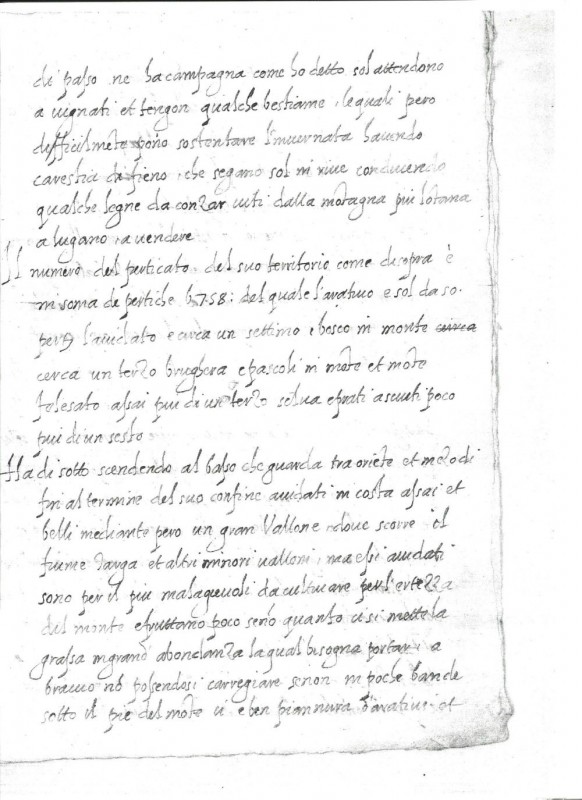 di passo ne ha campagna come ho detto sol attendono
a vignati et tengon qualche bestiame, le quali pero
difficilmẽte pono sostentare l'invernata havendo
carestia di fieno, che segano sol in rive conducendo
qualche legne da conzar viti dalla mõtagna piu lõtana
a lugano, a vendere
Il numero del perticato del suo territorio come di sopra è
in soma de pertiche del quale l'arativo e sol da 50.
l'avidato e circa un settimo, bosco in monte
cerca un terzo brughera e pascoli in mõte et mõte
assai piu di un terzo selva e prati asciuti poco
piu di un sesto
Ha di sotto scendendo al basso che guarda tra oriẽte et mezo di
fin al termine del suo confine avidati in costa assai et
belli mediante pero un gran Vallone dove scorre il
fiume et altri minori valloni, ma essi avidati
sono per il piu malagevoli da cultivare per l'ertezza
del monte e fruttano poco senõ quanto vi si mette la
grassa in grand abondanza la qual bisogna portar a
nõ possendosi carregiare se non in poche bande
sotto il pie del mõte vi e ben piannura d'arativi et